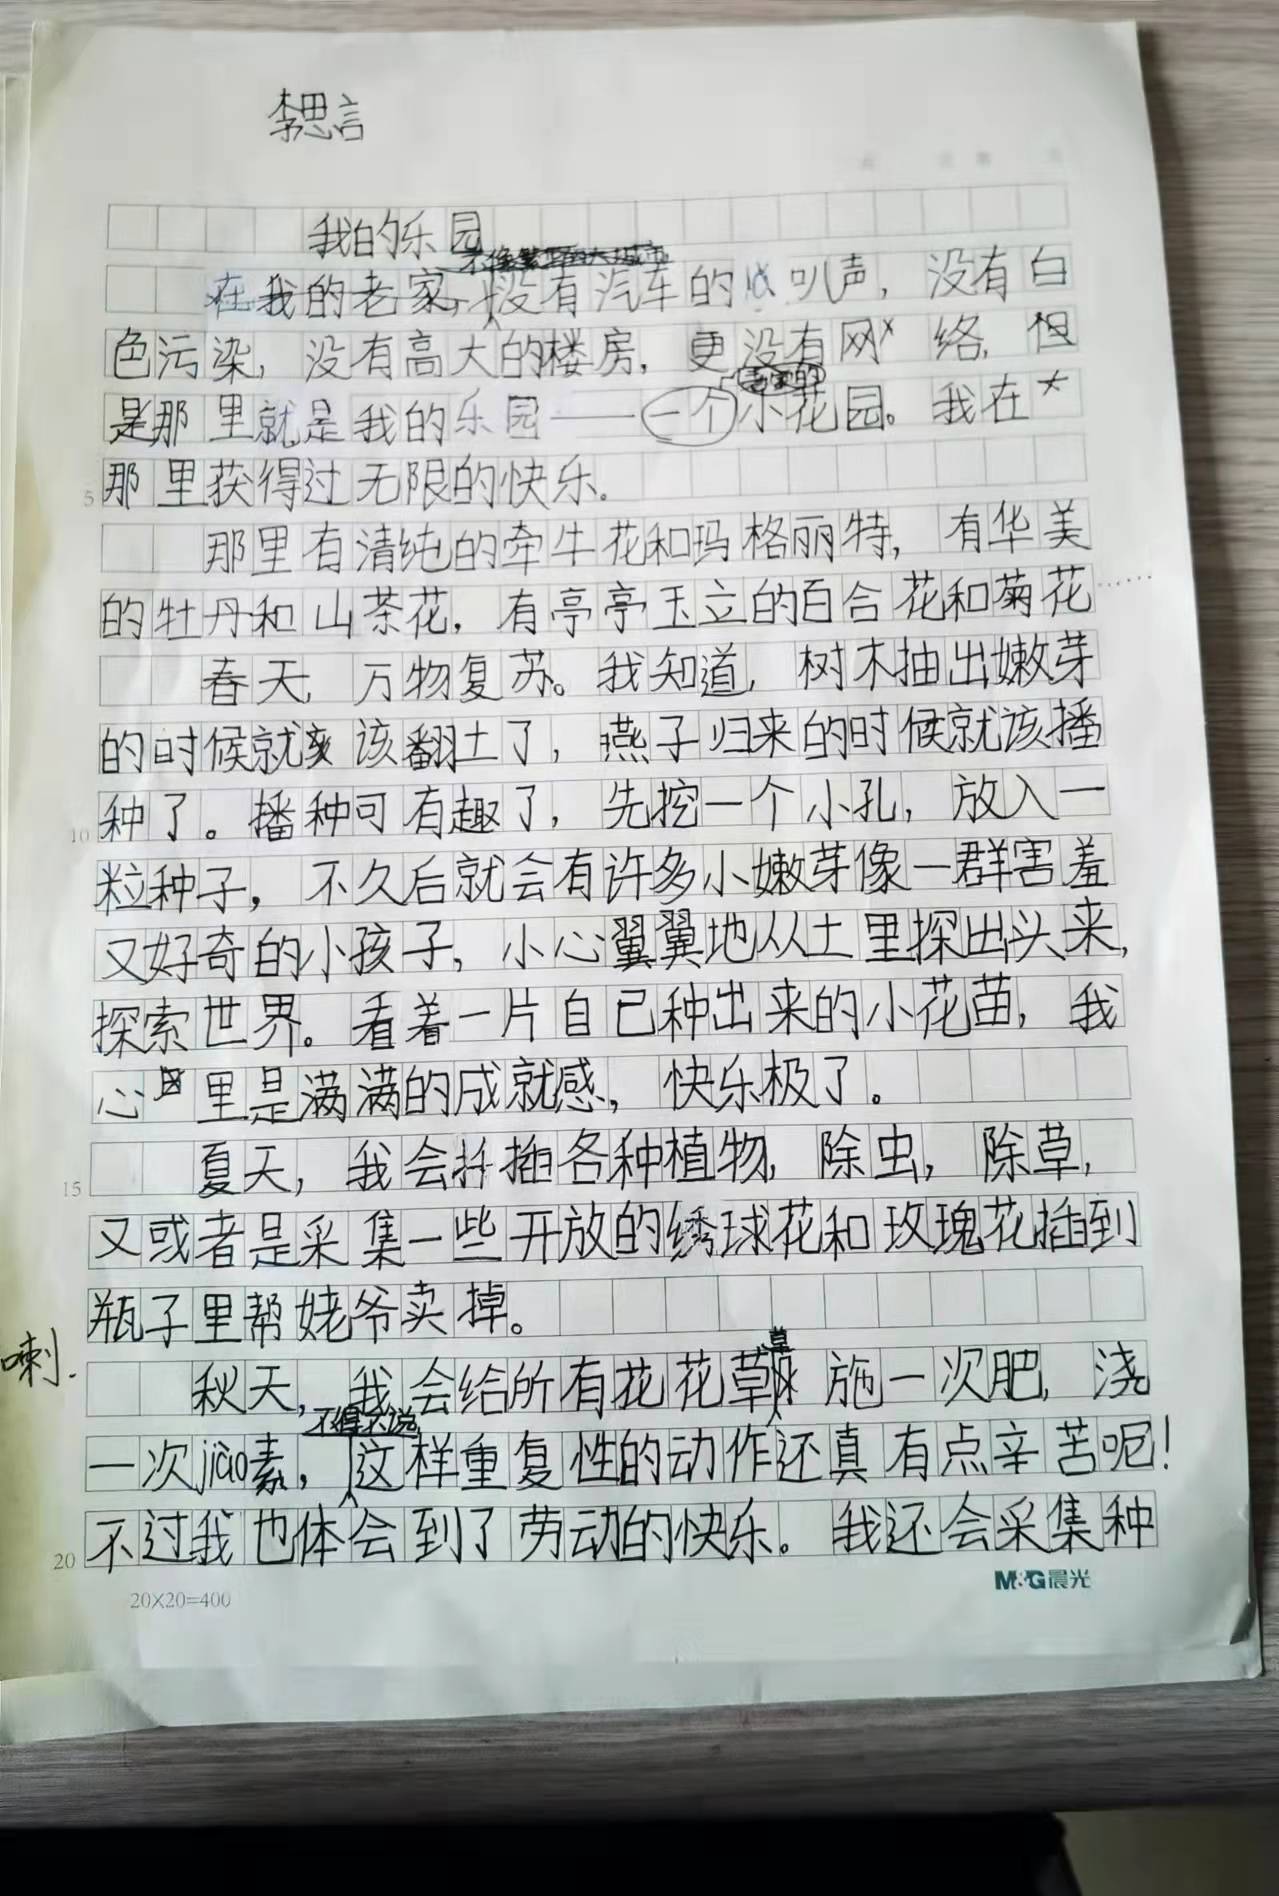 李思言
我的乐园
不像繁华的大城市
在我的老家,没有汽车的 叭声,没有白
色污染,没有高大的楼房,更没有网 络,但
老家的
是那里就是我的乐园——一个小花园。我在
5 那里获得过无限的快乐。
那里有清纯的牵牛花和玛格丽特,有华美
的牡丹和山茶花,有亭亭玉立的百合花和菊花……
春天,万物复苏。我知道,树木抽出嫩芽
的时候就该翻土了,燕子归来的时候就该播
10 种了。播种可有趣了,先挖一个小孔,放入一
粒种子,不久后就会有许多小嫩芽像一群害羞
又好奇的小孩子,小心翼翼地从土里探出头来,
探索世界。看着一片自己种出来的小花苗,我
心里是满满的成就感,快乐极了。
15 夏天,我会扦插各种植物,除虫,除草,
又或者是采集一些开放的绣球花和玫瑰花插到
瓶子里帮姥爷卖掉。
喇.
草
秋天,我会给所有花花草 施一次肥,浇
不得不说
一次jiào素,这样重复性的动作还真有点辛苦呢!
20 不过我也体会到了劳动的快乐。我还会采集种
20×20=400
M&G晨光